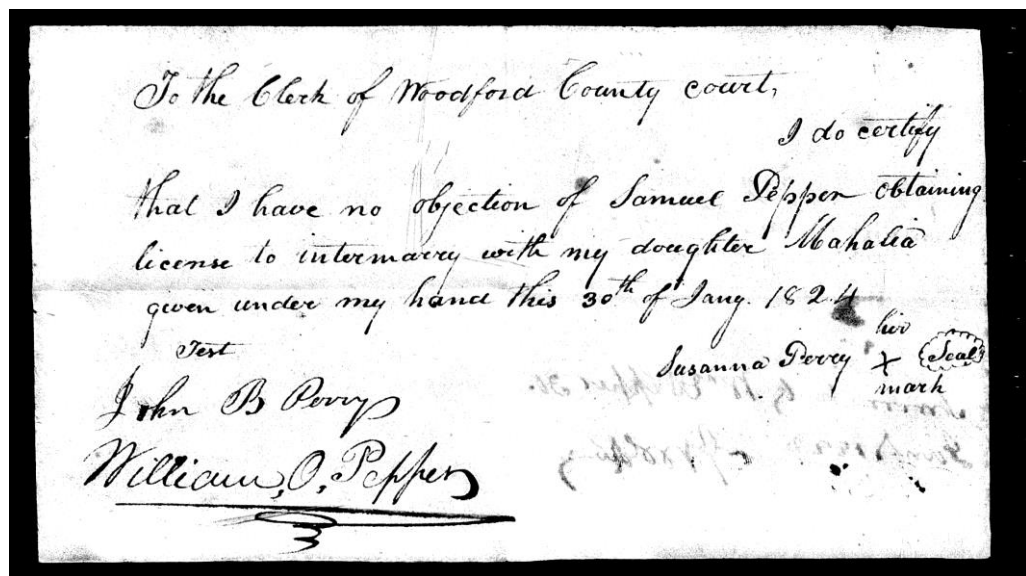 To the Clerk of Woodford County court,
I do certify
that I have no objection of Samuel Pepper obtaining
license to intermarry with my doughter Mahalia
given under my hand this 30th of Jany. 1824
Test
her
Susanna Perry X Seal
mark
John B Perry
William, O, Pepper